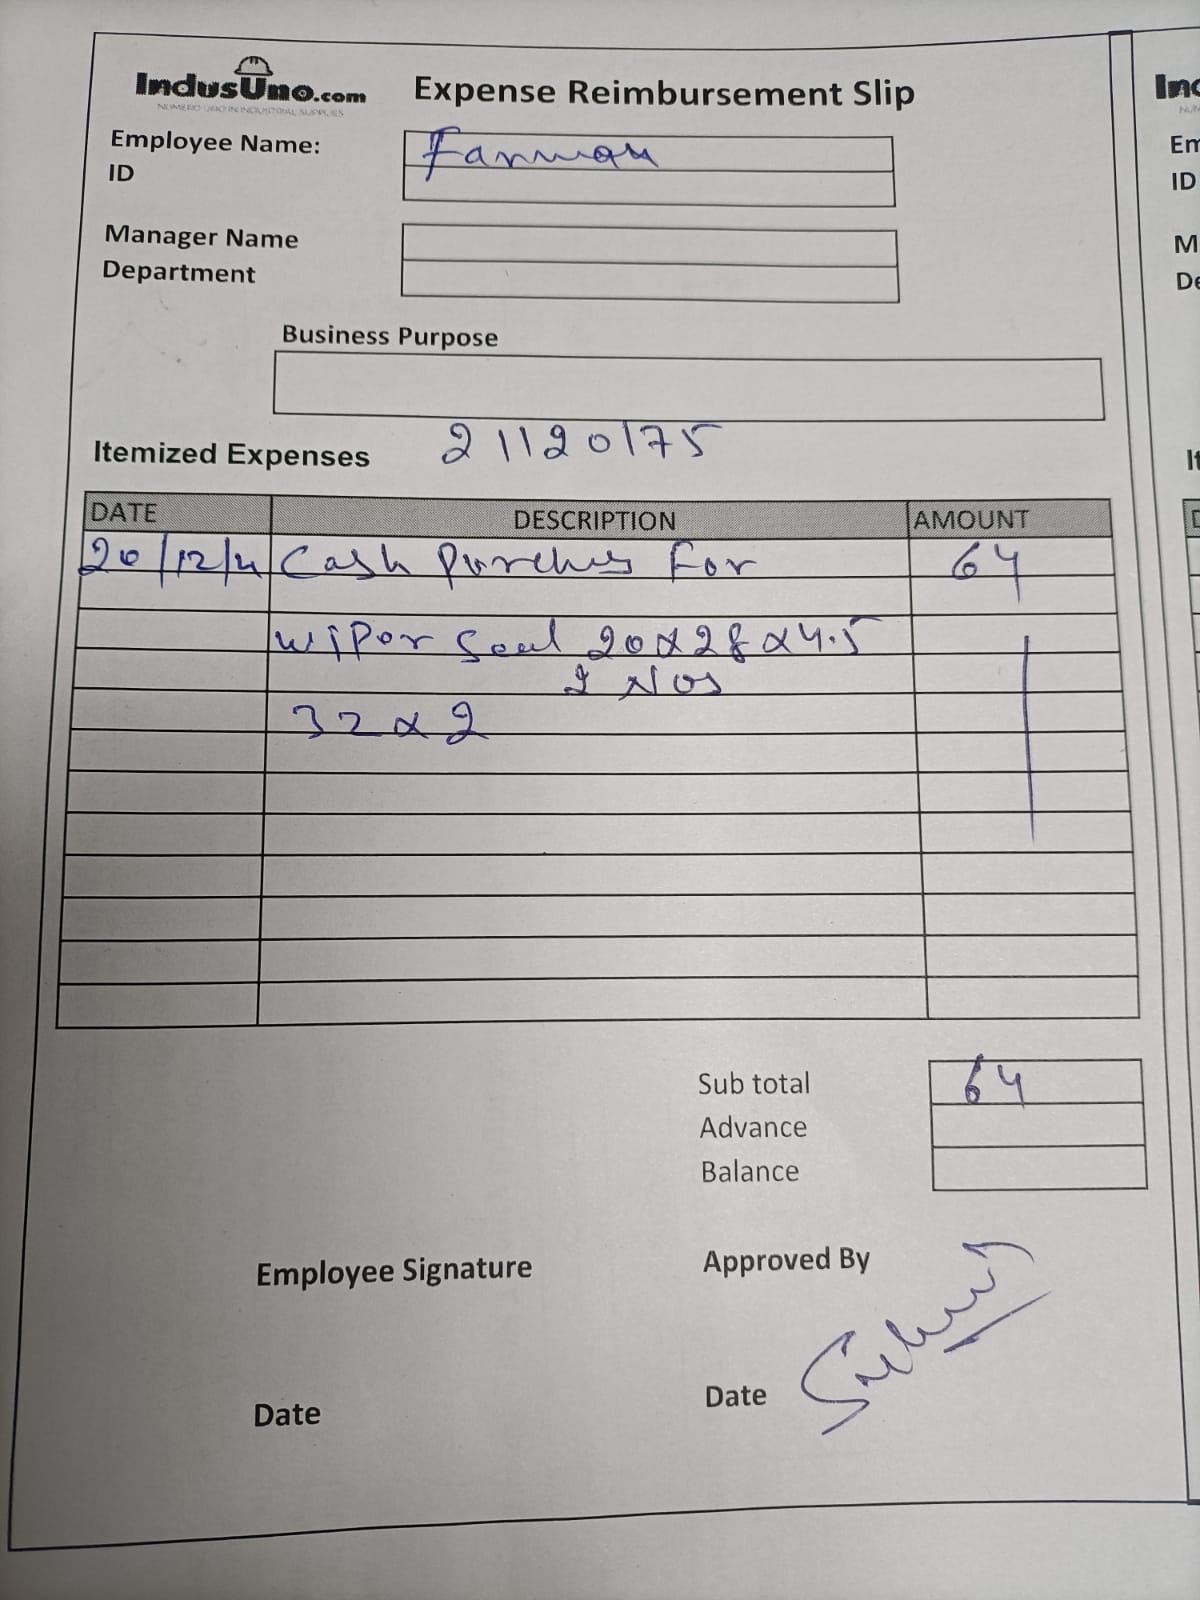 IndusUno.com
NUMERO UNO IN INDUSTRIAL SUPPLIES
Expense Reimbursement Slip
Employee Name:
ID
Manager Name
Department
Business Purpose
Itemized Expenses 21120175
DATE DESCRIPTION AMOUNT
20/12/21 Cash Purches For 64
wiper Seal 20x28x4.5
2 Nos
32x2
Sub total 64
Advance
Balance
Employee Signature Approved By
Date Date
Ind
Em
ID
M
De
It
D